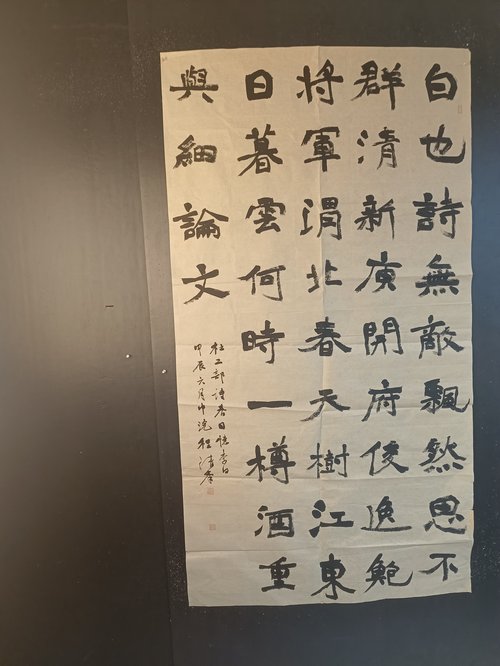 白也詩無敵飄然思不
群清新庾開府俊逸鮑
将軍渭北春天樹江東
日暮雲何時一樽酒重
與細論文
杜工部詩春日憶李白
甲辰六月中浣程清